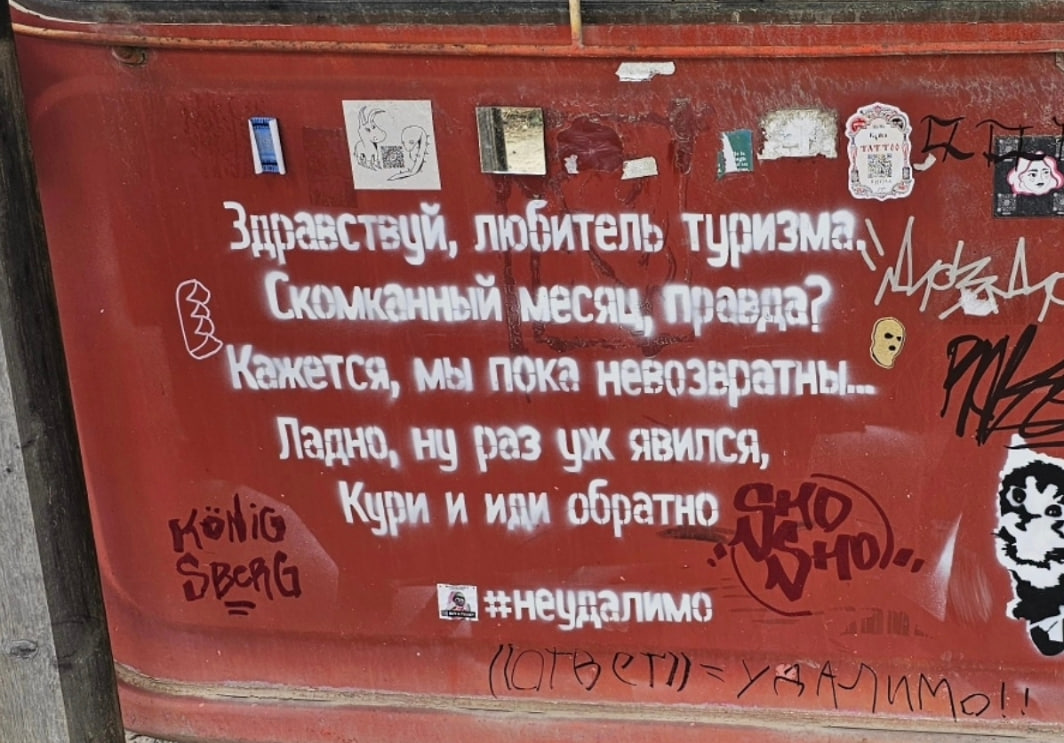 TATTOO
Здравствуй, любитель туризма.
Скомканный месяц, правда?
Кажется, мы пока невозвратны...
Ладно, ну раз уж явился,
Кури и иди обратно
KÖNiG
SBERG
SHO
SHO
#неудалимо
((ОТВЕТ)) = УДАЛИМО!!